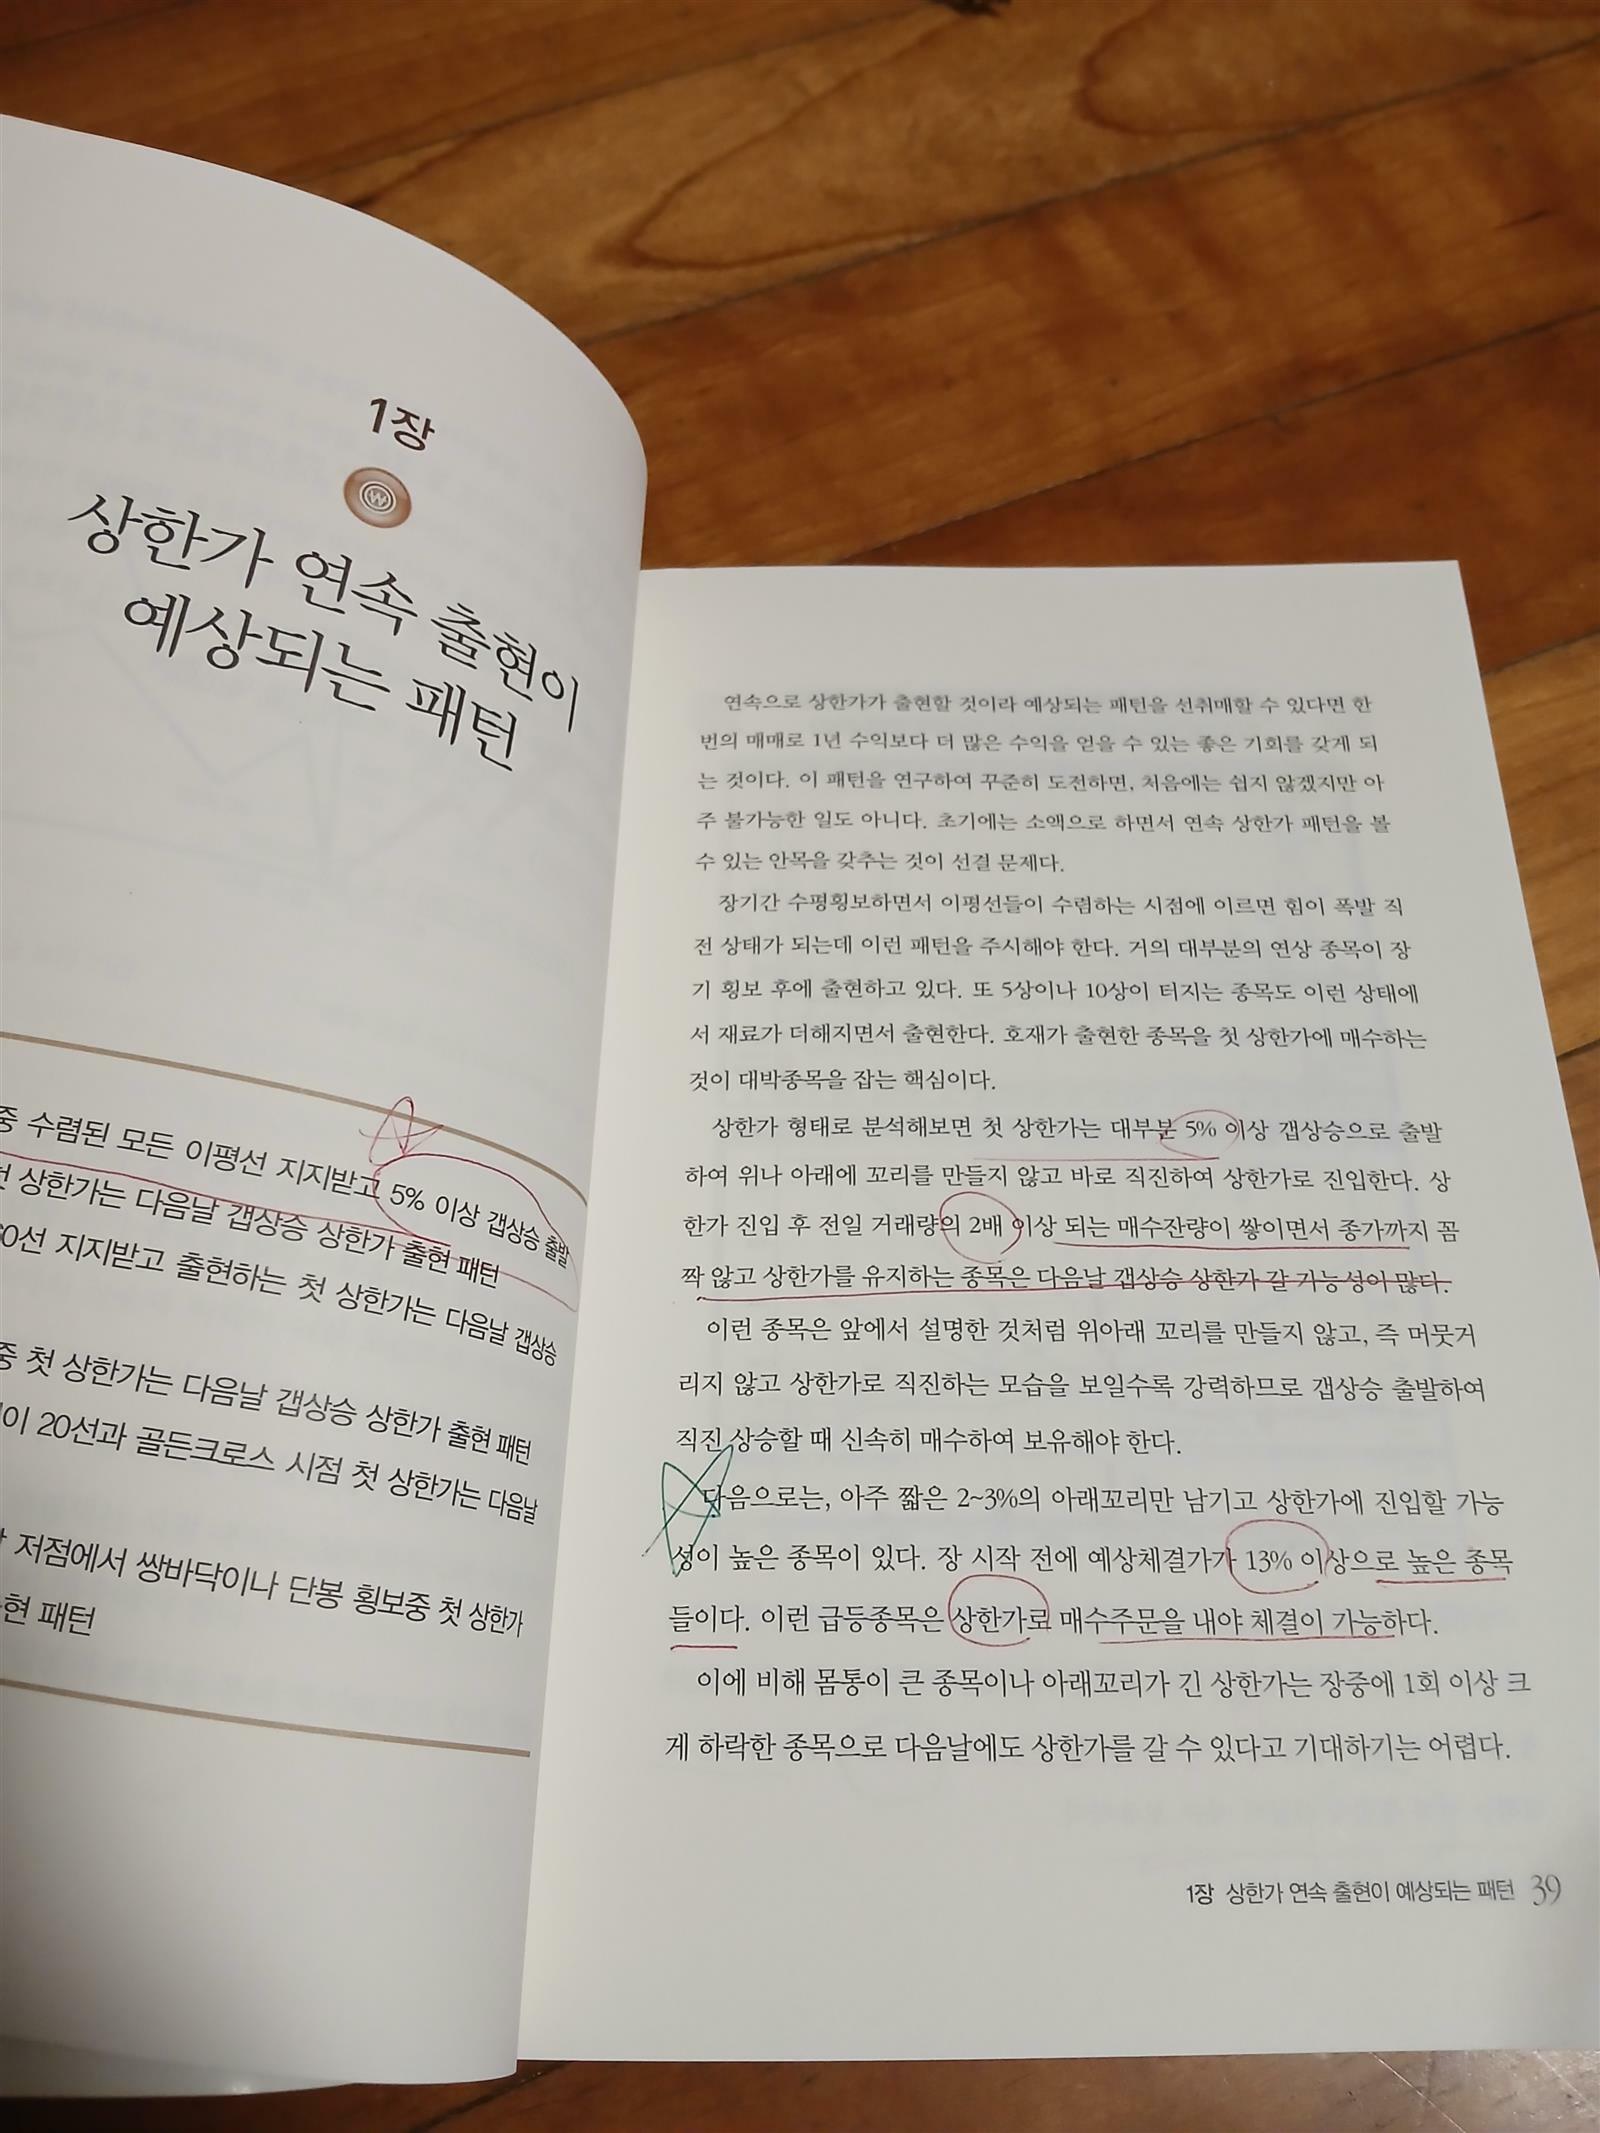 1장
상한가 연속 출현이
예상되는 패턴
중 수렴된 모든 이평선 지지받고 5% 이상 갭상승 출발
첫 상한가는 다음날 갭상승 상한가 출현 패턴
60선 지지받고 출현하는 첫 상한가는 다음날 갭상승
중 첫 상한가는 다음날 갭상승 상한가 출현 패턴
이 20선과 골든크로스 시점 첫 상한가는 다음날
저점에서 쌍바닥이나 단봉 횡보중 첫 상한가
현 패턴
연속으로 상한가가 출현할 것이라 예상되는 패턴을 선취매할 수 있다면 한
번의 매매로 1년 수익보다 더 많은 수익을 얻을 수 있는 좋은 기회를 갖게 되
는 것이다. 이 패턴을 연구하여 꾸준히 도전하면, 처음에는 쉽지 않겠지만 아
주 불가능한 일도 아니다. 초기에는 소액으로 하면서 연속 상한가 패턴을 볼
수 있는 안목을 갖추는 것이 선결 문제다.
장기간 수평횡보하면서 이평선들이 수렴하는 시점에 이르면 힘이 폭발 직
전 상태가 되는데 이런 패턴을 주시해야 한다. 거의 대부분의 연상 종목이 장
기 횡보 후에 출현하고 있다. 또 5상이나 10상이 터지는 종목도 이런 상태에
서 재료가 더해지면서 출현한다. 호재가 출현한 종목을 첫 상한가에 매수하는
것이 대박종목을 잡는 핵심이다.
상한가 형태로 분석해보면 첫 상한가는 대부분 5% 이상 갭상승으로 출발
하여 위나 아래에 꼬리를 만들지 않고 바로 직진하여 상한가로 진입한다. 상
한가 진입 후 전일 거래량의 2배 이상 되는 매수잔량이 쌓이면서 종가까지 꼼
짝 않고 상한가를 유지하는 종목은 다음날 갭상승 상한가 갈 가능성이 많다.
이런 종목은 앞에서 설명한 것처럼 위아래 꼬리를 만들지 않고, 즉 머뭇거
리지 않고 상한가로 직진하는 모습을 보일수록 강력하므로 갭상승 출발하여
직진 상승할 때 신속히 매수하여 보유해야 한다.
다음으로는, 아주 짧은 2~3%의 아래꼬리만 남기고 상한가에 진입할 가능
성이 높은 종목이 있다. 장 시작 전에 예상체결가가 13% 이상으로 높은 종목
들이다. 이런 급등종목은 상한가로 매수주문을 내야 체결이 가능하다.
이에 비해 몸통이 큰 종목이나 아래꼬리가 긴 상한가는 장중에 1회 이상 크
게 하락한 종목으로 다음날에도 상한가를 갈 수 있다고 기대하기는 어렵다.
1장 상한가 연속 출현이 예상되는 패턴 39